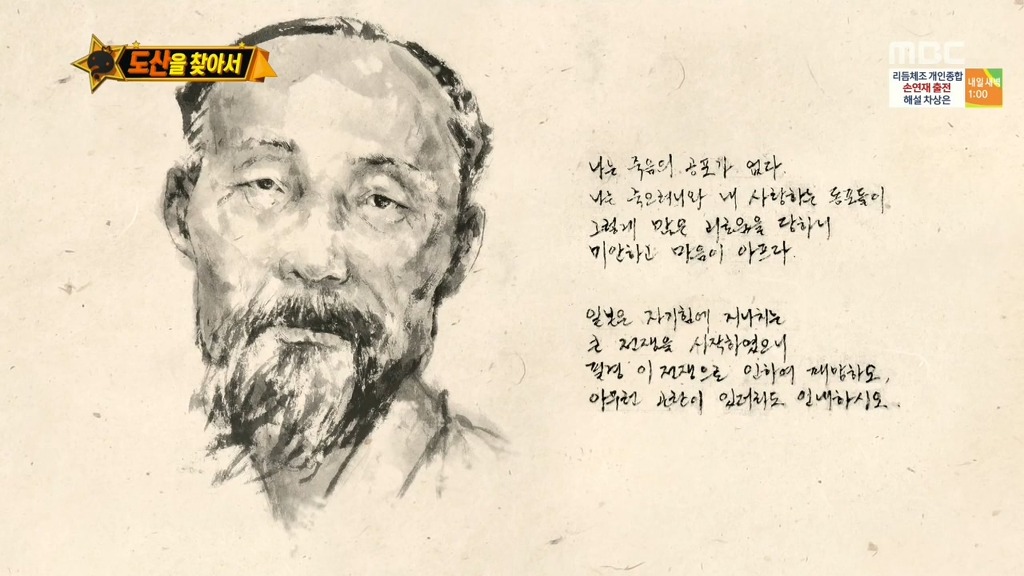 도산을 찾아서
MBC
리듬체조 개인종합
손연재 출전
해설 차상은
내일 새벽
1:00
나는 죽음의 공포가 없다.
나는 죽으려니와 내 사랑하는 동포들이
그렇게 많은 괴로움을 당하니
미안하고 마음이 아프다.
일본은 자기힘에 지나치는
큰 전쟁을 시작하였으니
필경 이 전쟁으로 인하여 패망하오.
아무런 곤란이 있더라도 인내하시오.